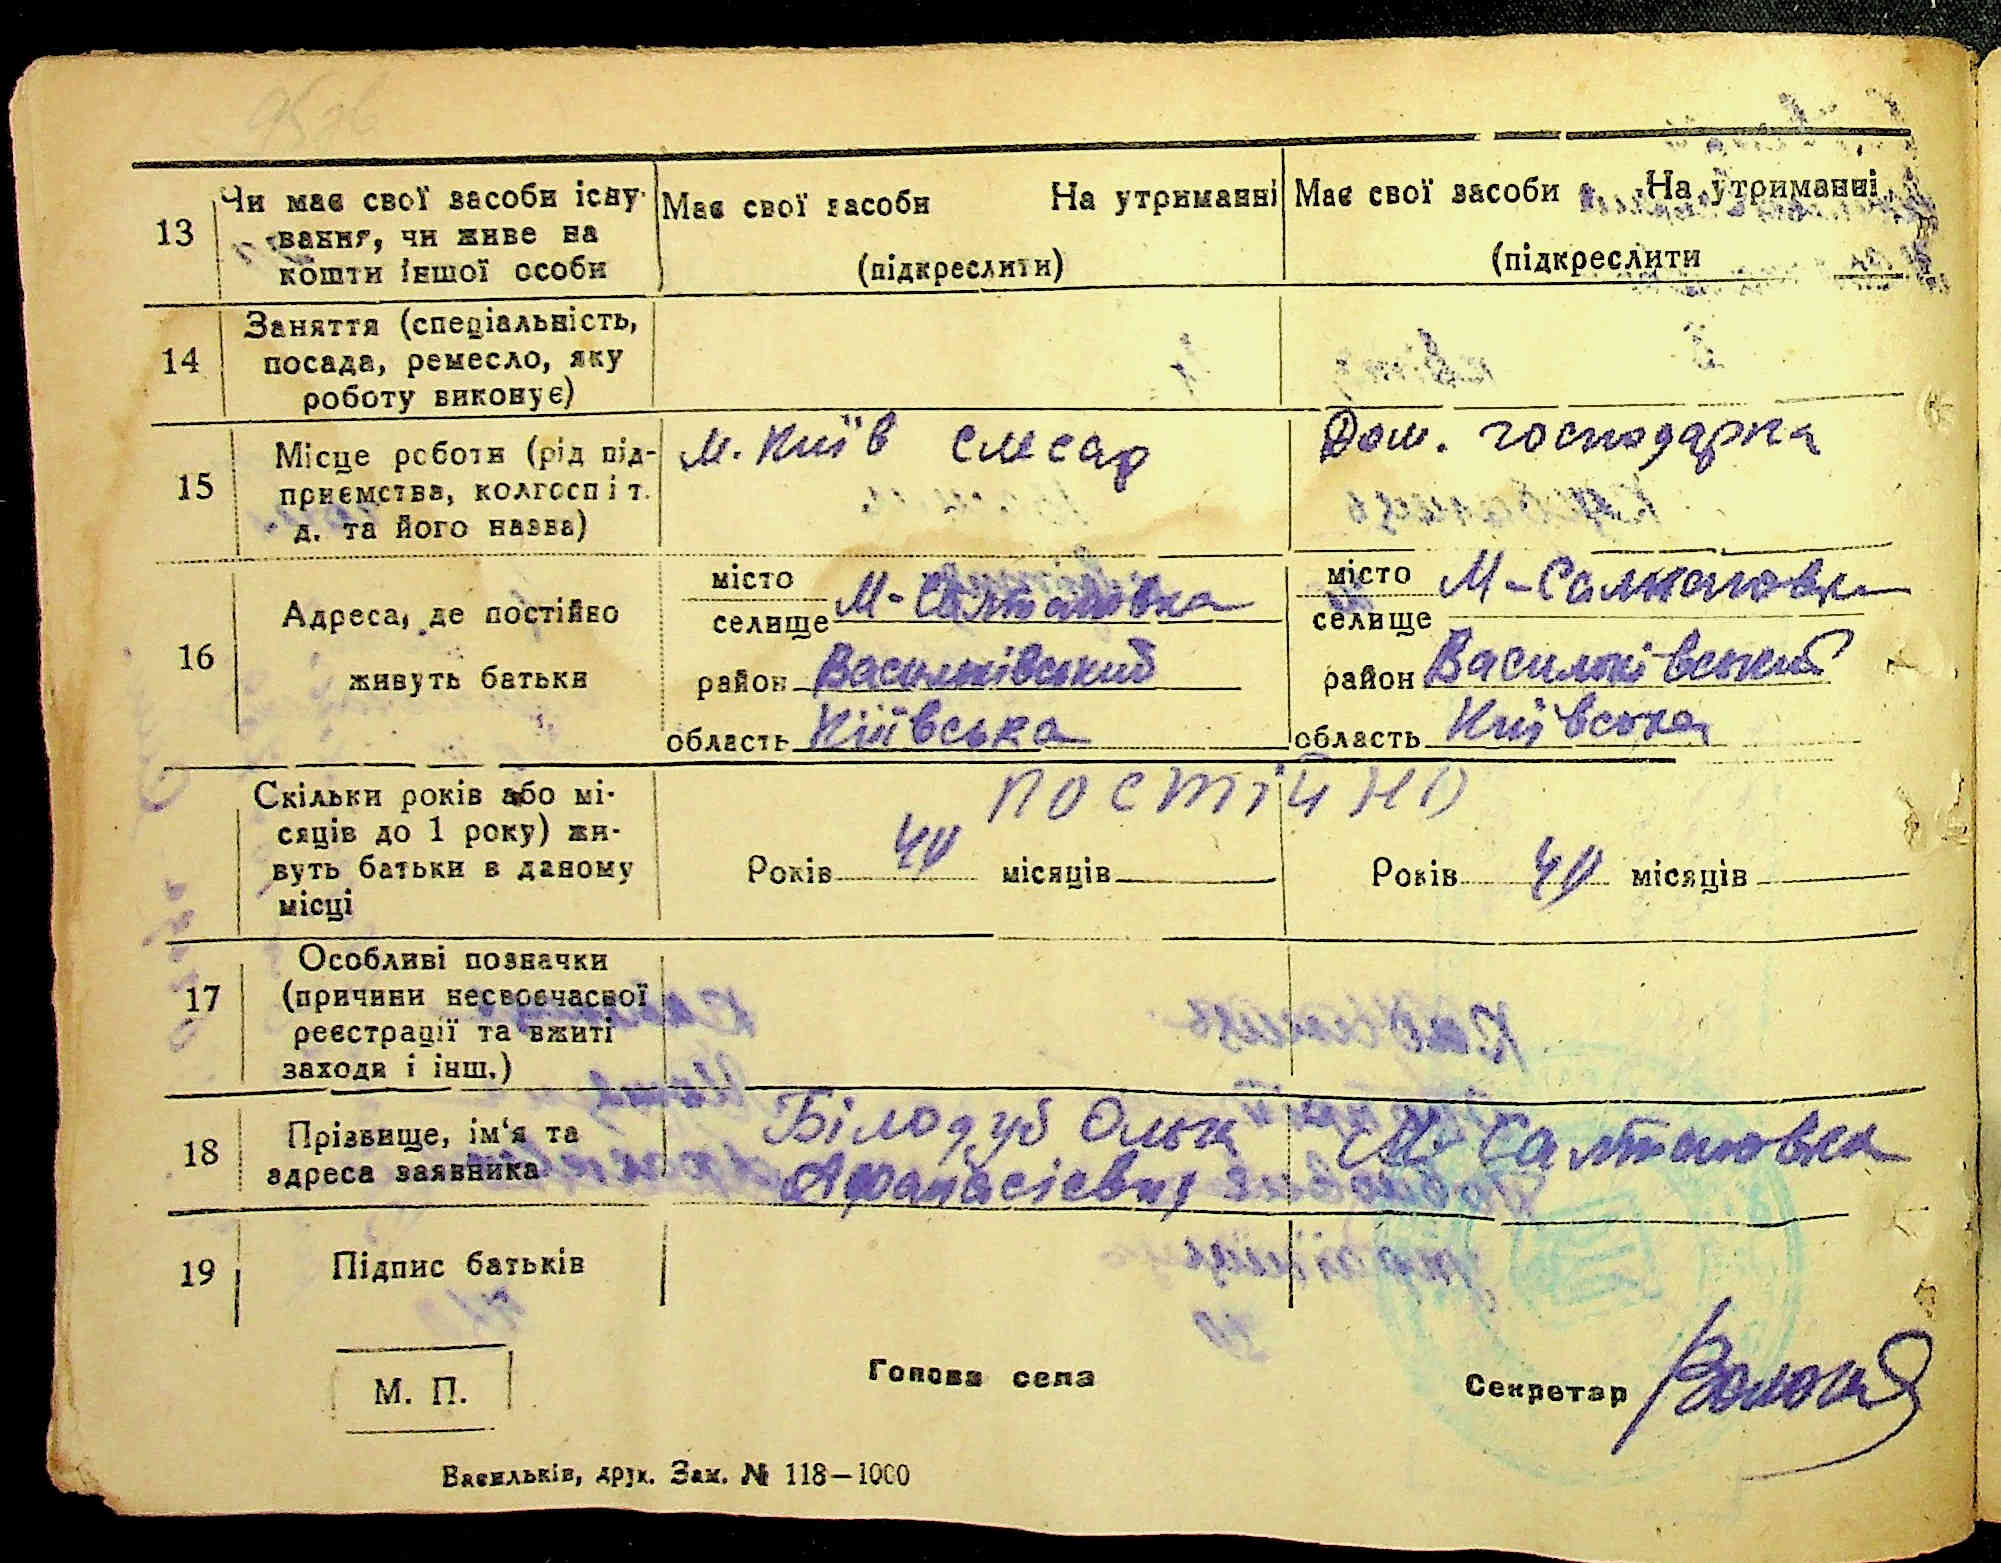 13 Чи має свої засоби існу- Має свої засоби На утриманні Має свої засоби На утриманні
вання, чи живе на
кошти іншої особи (підкреслити) (підкреслити
14 Заняття (спеціальність,
посада, ремесло, яку
роботу виконує)
15 Місце роботи (рід під- м. Київ слесар Дом. господарка
приємства, колгосп і т.
д. та його назва)
16 Адреса, де постійно живуть батьки
місто М-Салтановка місто М-Салтановка
селище селище
район Васильківський район Васильківський
область Київська область Київська
постійно
Скільки років або мі-
сяців до 1 року) жи-
вуть батьки в даному Років 40 місяців Років 40 місяців
місці
17 Особливі позначки
(причини несвоєчасної
реєстрації та вжиті
заходи і інш.)
18 Прізвище, ім'я та Білодуб Ольга М-Салтановка
адреса заявника Афанасієвна
19 Підпис батьків
М. П. Голова села Секретар
Васильків, друк. Зам. № 118—1000